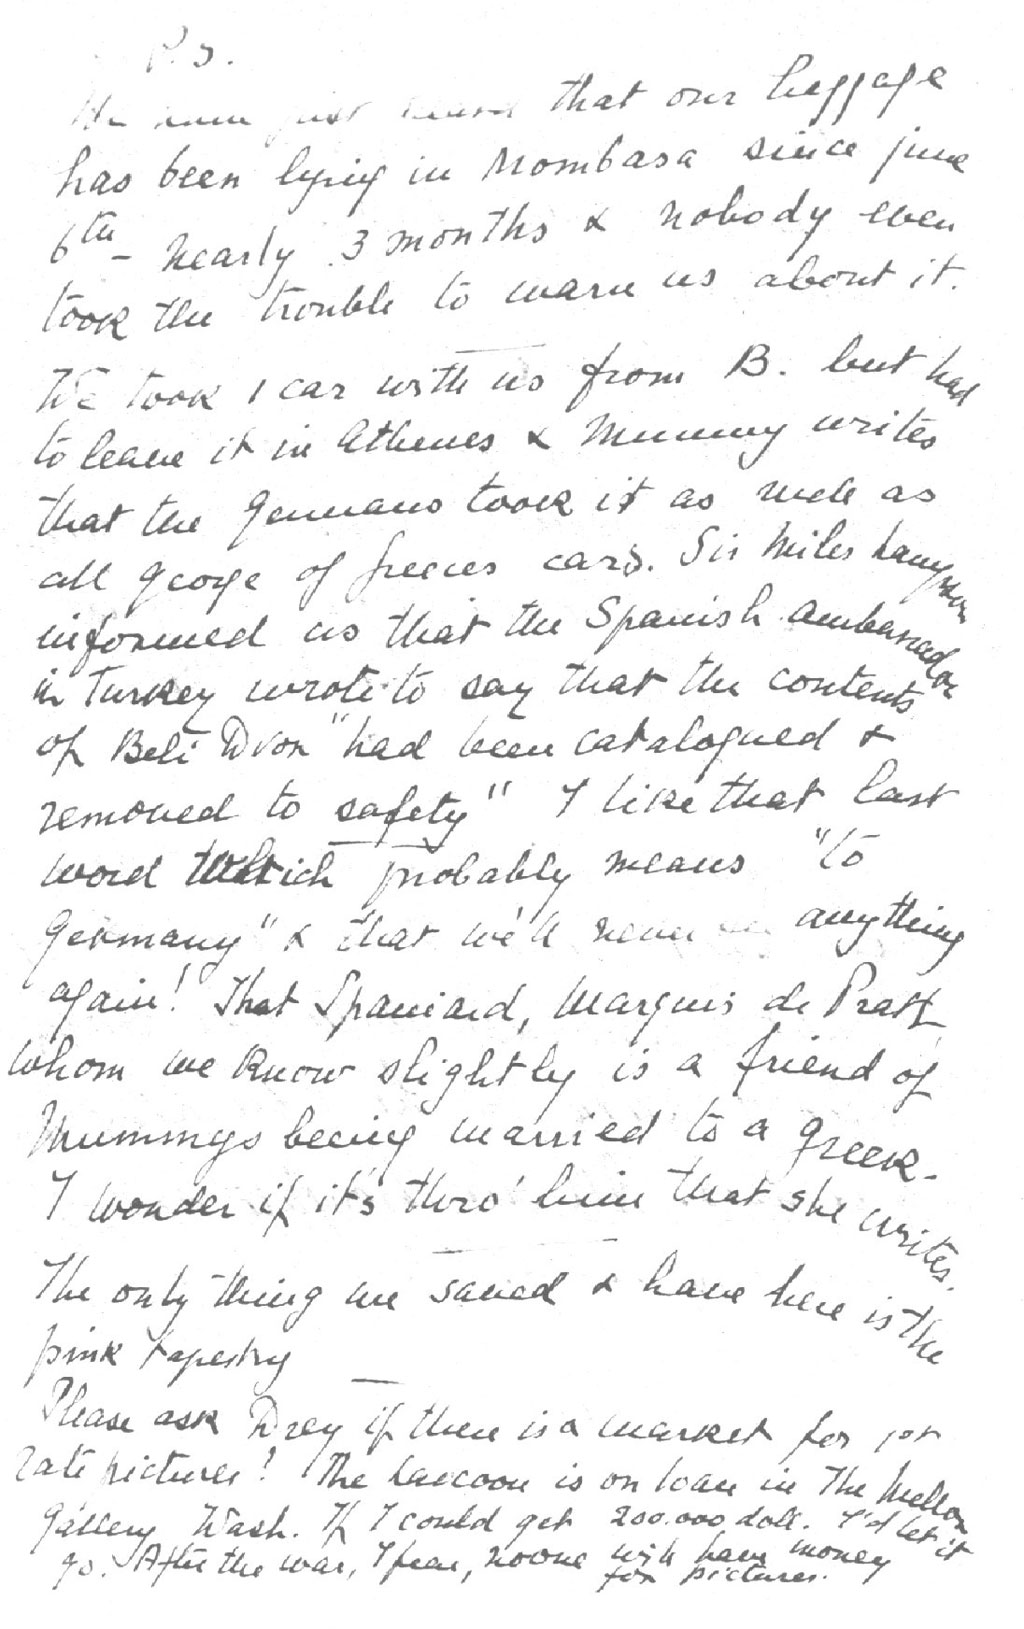 P.S.
We have just heard that our luggage
has been lying in Mombasa since june
6th - nearly 3 months & nobody even
took the trouble to warn us about it.
We took 1 car with us from B. but had
to leave it in Athenes & Mummy writes
that the Germans took it as well as
all George of Greeces cars. Sir Miles Lampson
informed us that the Spanish ambassador
in Turkey wrote to say that the contents
of Beli Dvor "had been catalogued &
removed to safety" I like that last
word which probably means "to
Germany" & that we'll never see anything
again! That Spaniard, Marquis de Prat
whom we know slightly is a friend of
Mummys beeing married to a Greek.
I wonder if it's thro' him that she writes.
The only thing we saved & have here is the
pink tapestry
Please ask Drey if there is a market for 1st
rate pictures! The Laocoon is on loan in the Mellon
Gallery Wash. If I could get 200.000 doll. I'd let it
go. After the war, I fear, noone will have money
for pictures.